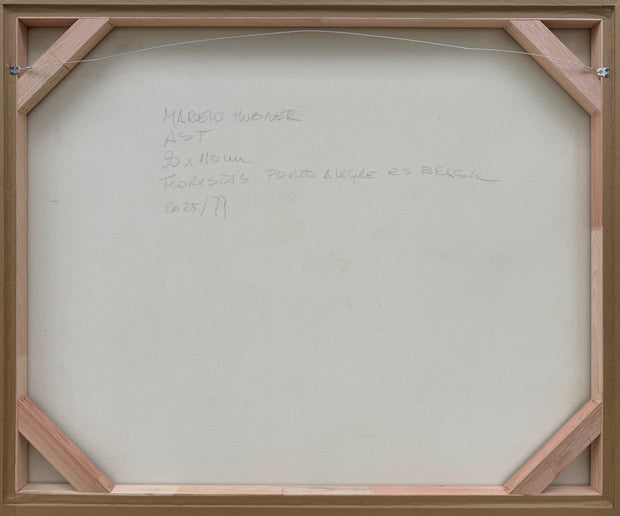 MARCELO HÜBNER
AST
90 x 110 cm
FLORISTAS PORTO ALEGRE RS BRASIL
2025/79